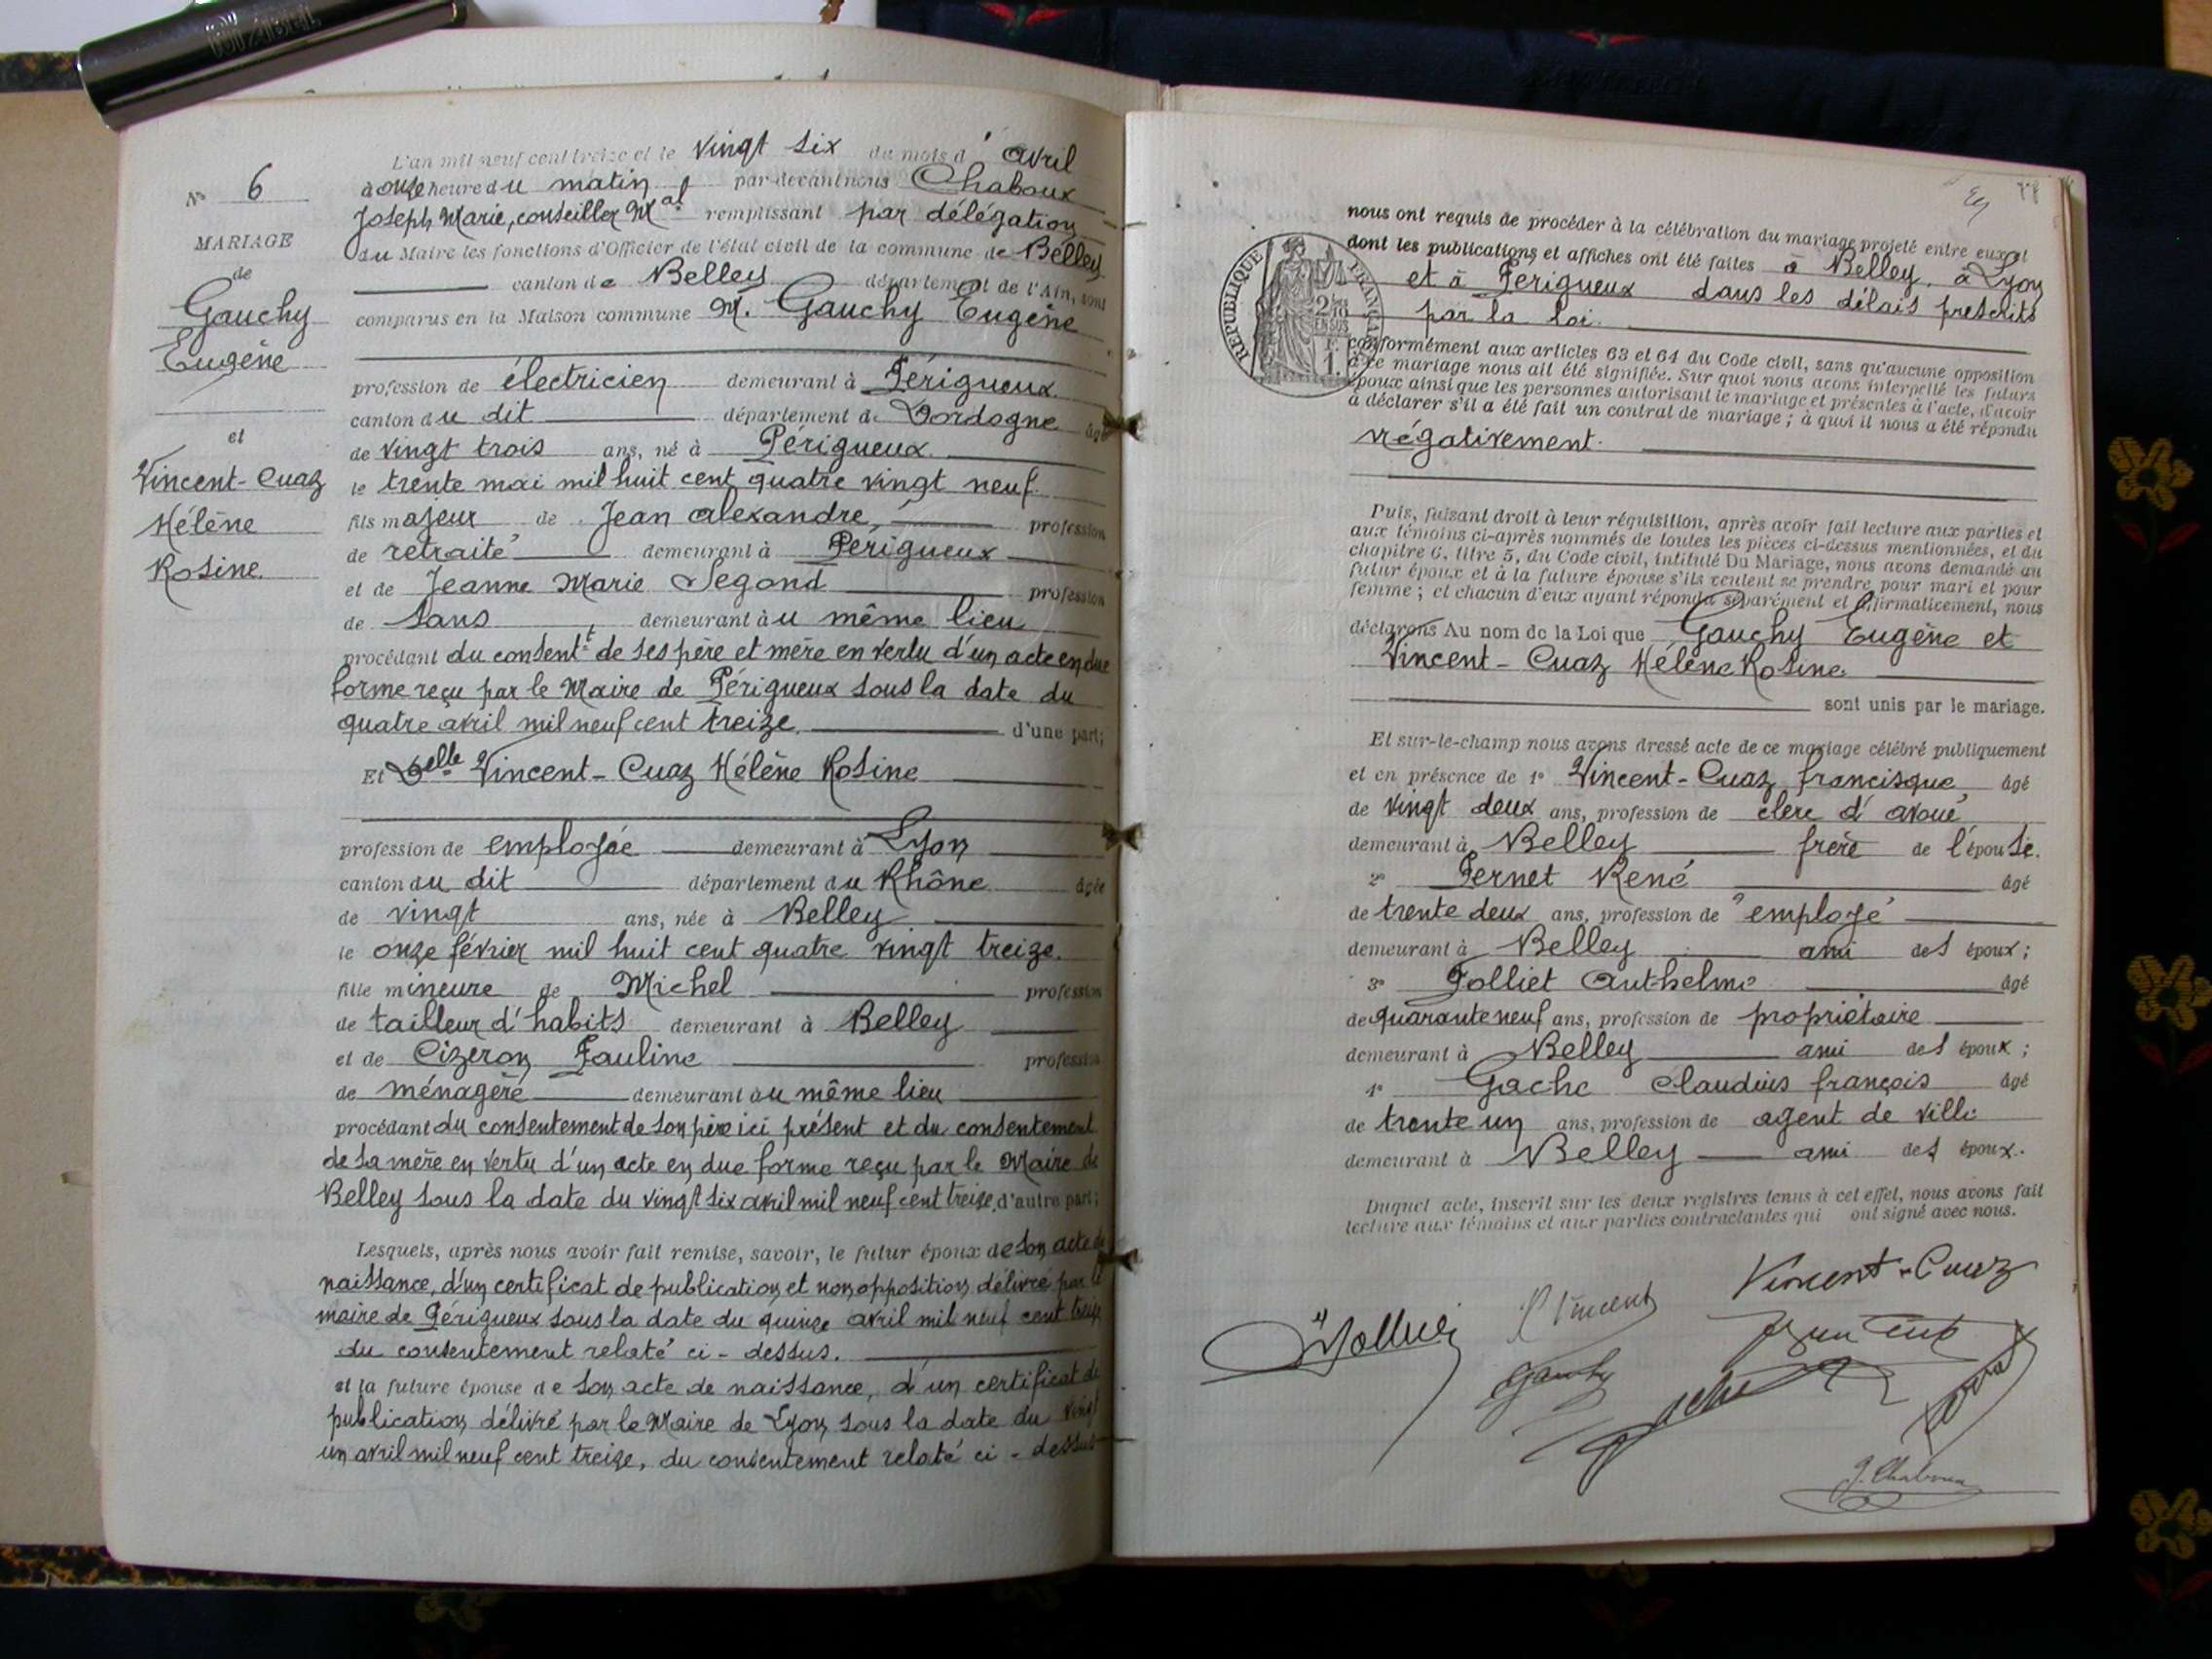 N° 6
MARIAGE
de
Gauchy
Eugène
et
Vincent-Cuaz
Hélène
Rosine.
L'an mil neuf cent treize et le vingt six du mois d'avril
à onze heure du matin, par-devant nous Chaboux
Joseph Marie, conseiller Mal remplissant par délégation
du Maire les fonctions d'Officier de l'état civil de la commune de Belley
canton de Belley département de l'Ain, sont
comparus en la Maison commune M. Gauchy Eugène
profession de électricien demeurant à Périgueux
canton du dit département de Dordogne âgé
de vingt trois ans, né à Périgueux.
le trente mai mil huit cent quatre vingt neuf.
fils majeur de Jean Alexandre, profession
de retraité demeurant à Perigueux
et de Jeanne Marie Segond profession
de sans, demeurant au même lieu
procédant du consentt de ses père et mère en vertu d'un acte en due
forme reçu par le Maire de Périgueux sous la date du
quatre avril mil neuf cent treize. d'une part;
Et Delle Vincent-Cuaz Hélène Rosine
profession de employée demeurant à Lyon
canton du dit département du Rhône âgée
de vingt ans, née à Belley
le onze février mil huit cent quatre vingt treize.
fille mineure de Michel profession
de tailleur d'habits demeurant à Belley
et de Cizeron Pauline profession
de ménagère demeurant au même lieu
procédant du consentement de son père ici présent et du consentement
de sa mère en vertu d'un acte en due forme reçu par le Maire de
Belley sous la date du vingt six avril mil neuf cent treize, d'autre part;
Lesquels, après nous avoir fait remise, savoir, le futur époux de son acte de
naissance, d'un certificat de publication et non opposition délivré par le
maire de Périgueux sous la date du quinze avril mil neuf cent treize
du consentement relaté ci-dessus.
et la future épouse de son acte de naissance, d'un certificat de
publication délivré par le Maire de Lyon sous la date du vingt
un avril mil neuf cent treize, du consentement relaté ci-dessus
nous ont requis de procéder à la célébration du mariage projeté entre eux et
dont les publications et affiches ont été faites à Belley, à Lyon
et à Perigueux dans les délais prescrits
par la loi.
RÉPUBLIQUE FRANÇAISE
2/10
EN SUS
conformément aux articles 63 et 64 du Code civil, sans qu'aucune opposition
à ce mariage nous ait été signifiée. Sur quoi nous avons interpellé les futurs
époux ainsi que les personnes autorisant le mariage et présentes à l'acte, d'avoir
à déclarer s'il a été fait un contrat de mariage; à quoi il nous a été répondu
négativement.
Puis, faisant droit à leur réquisition, après avoir fait lecture aux parties et
aux témoins ci-après nommés de toutes les pièces ci-dessus mentionnées, et du
chapitre 6, titre 5, du Code civil, intitulé Du Mariage, nous avons demandé au
futur époux et à la future épouse s'ils veulent se prendre pour mari et pour
femme; et chacun d'eux ayant répondu séparément et affirmativement, nous
déclarons Au nom de la Loi que Gauchy Eugène et
Vincent-Cuaz Hélène Rosine
sont unis par le mariage.
Et sur-le-champ nous avons dressé acte de ce mariage célébré publiquement
et en présence de 1° Vincent-Cuaz francisque âgé
de vingt deux ans, profession de clerc d'avoué
demeurant à Belley frère de l'épouse.
2° Pernet René âgé
de trente deux ans, profession de employé
demeurant à Belley ami des époux;
3° Folliet Anthelme âgé
de quarante neuf ans, profession de propriétaire
demeurant à Belley ami des époux;
4° Gache Claudius françois âgé
de trente un ans, profession de agent de ville
demeurant à Belley ami des époux.
Duquel acte, inscrit sur les deux registres tenus à cet effet, nous avons fait
lecture aux témoins et aux parties contractantes qui ont signé avec nous.
Vincent-Cuaz
Vincent
Gauchy
J. Chaboux